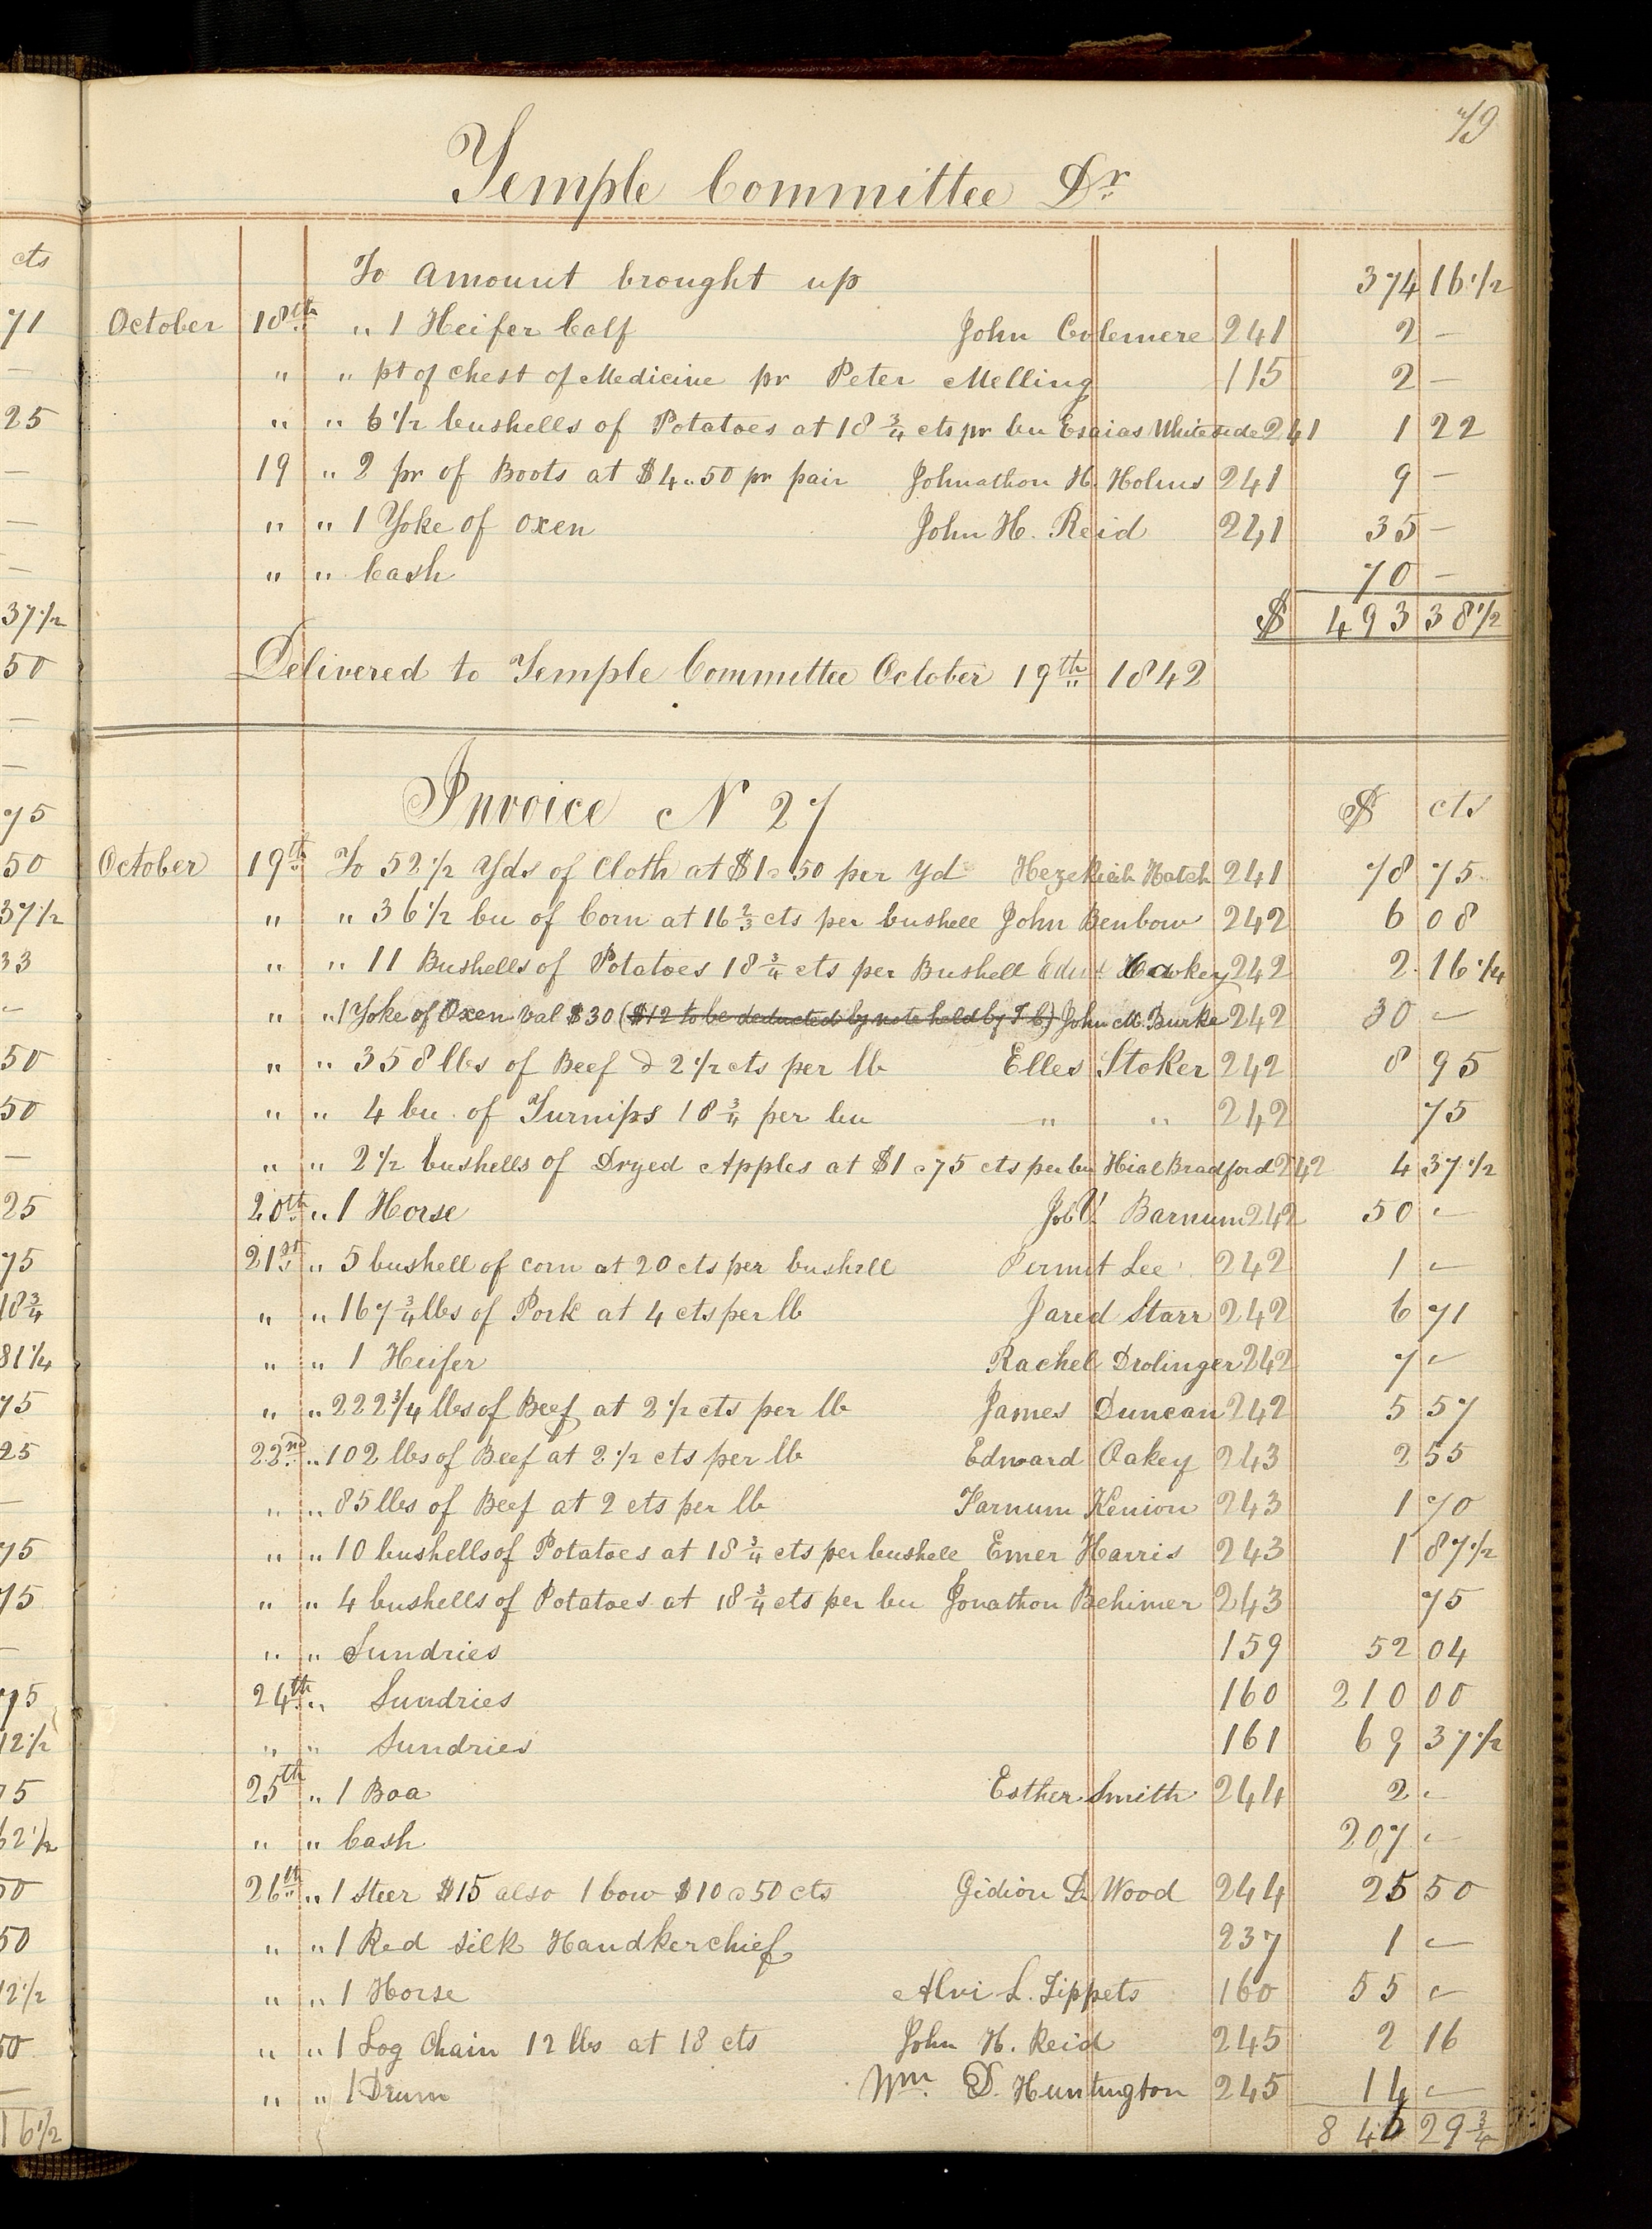 79
Temple Committee Dr
cts
To amount brought up 374 16 1/2
71 October 18th " 1 Heifer Calf John Colemere 241 2 -
- " " pt of Chest of Medicine pr Peter Melling 115 2 -
25 " " 6 1/2 bushells of Potatoes at 18 3/4 cts pr bu Esaias Whiteside 241 1 22
- 19 " 2 pr of Boots at $4.50 pr pair Johnathon H. Holms 241 9 -
- " " 1 Yoke of Oxen John H. Reid 241 35 -
- " " Cash 70 -
37 1/2 $ 493 38 1/2
50 Delivered to Temple Committee October 19th 1842
-
-
75 Invoice N 27 $ cts
50 October 19th To 52 1/2 Yds of Cloth at $1.50 per Yd Hezekiah Hatch 241 78 75
37 1/2 " " 36 1/2 bu of Corn at 16 2/3 cts per bushell John Benbow 242 6 08
33 " " 11 Bushells of Potatoes 18 3/4 cts per Bushell 242 2 16 1/4
- " " 1 Yoke of Oxen Val $30 ($12 to be deducted by note held by T C) John M. Burke 242 30 -
50 " " 358 lbs of Beef @ 2 1/2 cts per lb Elles Stoker 242 8 95
50 " " 4 bu. of Turnips 18 3/4 per bu " " 242 75
- " " 2 1/2 bushells of Dryed Apples at $1.75 cts per bu Hial Bradford 242 4 37 1/2
25 20th " 1 Horse Job V. Barnum 242 50 -
75 21st " 5 bushell of corn at 20 cts per bushell Permit Lee 242 1 -
18 3/4 " " 167 3/4 lbs of Pork at 4 cts per lb Jared Starr 242 6 71
81 1/4 " " 1 Heifer Rachel Drolinger 242 7 -
75 " " 222 3/4 lbs of Beef at 2 1/2 cts per lb James Duncan 242 5 57
25 22nd " 102 lbs of Beef at 2 1/2 cts per lb Edward Oakey 243 2 55
- " " 85 lbs of Beef at 2 cts per lb Farnum Kenion 243 1 70
75 " " 10 bushells of Potatoes at 18 3/4 cts per bushell Emer Harris 243 1 87 1/2
75 " " 4 bushells of Potatoes at 18 3/4 cts per bu Jonathon Behimer 243 75
- " " Sundries 159 52 04
75 24th " Sundries 160 210 00
12 1/2 " " Sundries 161 69 37 1/2
75 25th " 1 Boa Esther Smith 244 2 -
62 1/2 " " Cash 207 -
50 26th " 1 Steer $15 also 1 cow $10.50 cts Gidion D. Wood 244 25 50
50 " " 1 Red Silk Handkerchief 237 1 -
12 1/2 " " 1 Horse Alvi L. Tippets 160 55 -
50 " " 1 Log Chain 12 lbs at 18 cts John H. Reid 245 2 16
- " " 1 Drum Wm. D. Huntington 245 14 -
16 1/2 846 29 3/4